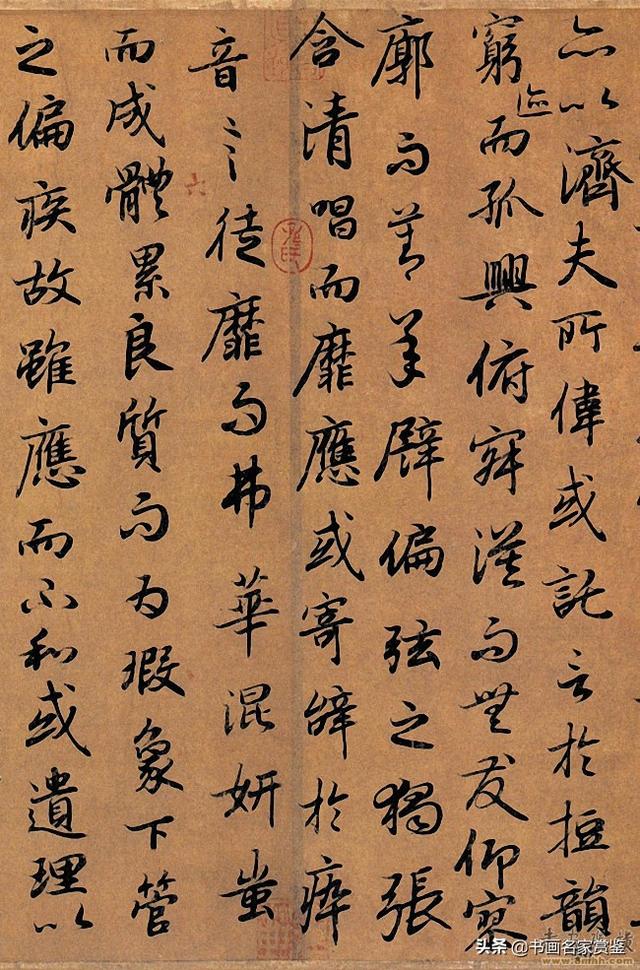 亦以濟夫所偉或託言於短韻
窮迹而孤興俯寂漠而無友仰寥
廓而莫承譬偏弦之獨張
含清唱而靡應或寄辭於瘁
音言徒靡而弗華混妍蚩
而成體累良質而為瑕象下管
之偏疾故雖應而不和或遺理以
六
头条 @书画名家赏鉴